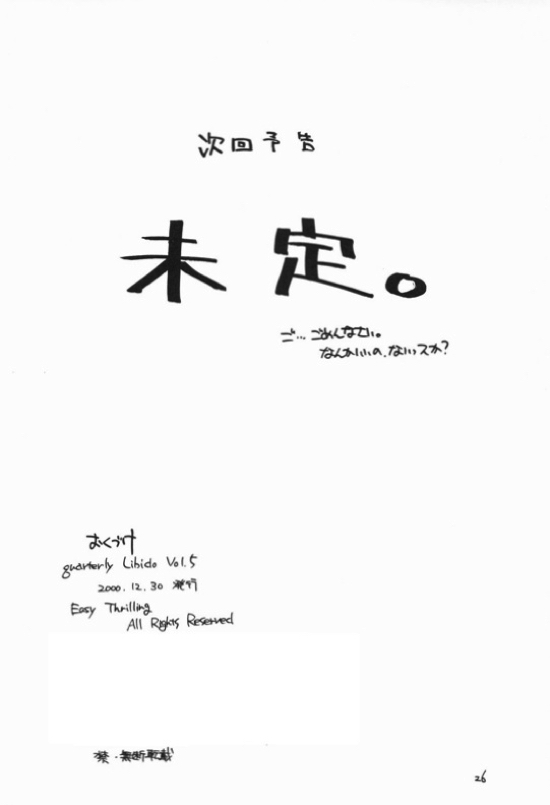 次回予告
未定。
ご…ごめんなさい。
なんかいいの、ないっスか?
おくづけ
quarterly Libido Vol.5
2000.12.30 発行
Easy Thrilling
All Rights Reserved
禁・無断転載
26